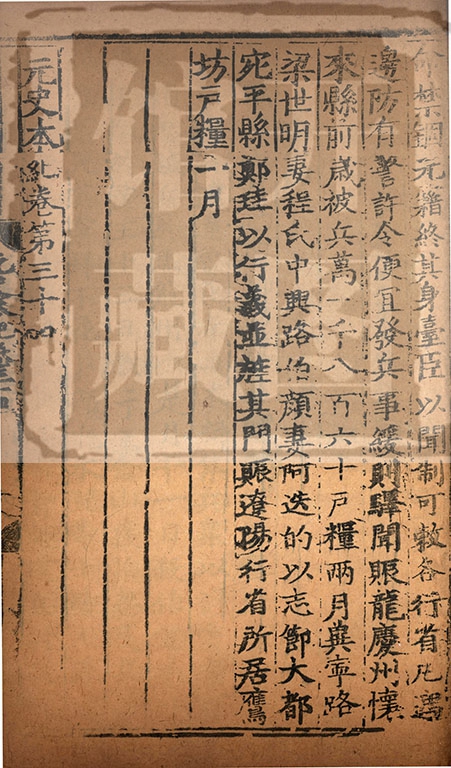 禁錮元籍終其身臺臣以聞制可敕各行省凡遇
邊防有警許令便宜發兵事緩則驛聞賑龍慶州懷
來縣前歲被兵萬一千八百六十戶糧兩月冀寧路
梁世明妻程氏中興路伯顏妻阿迭的以志節大都
宛平縣鄭珪以行義並旌其門賑遼陽行省所居鷹
坊戶糧一月
元史本紀卷第三十四
館
藏